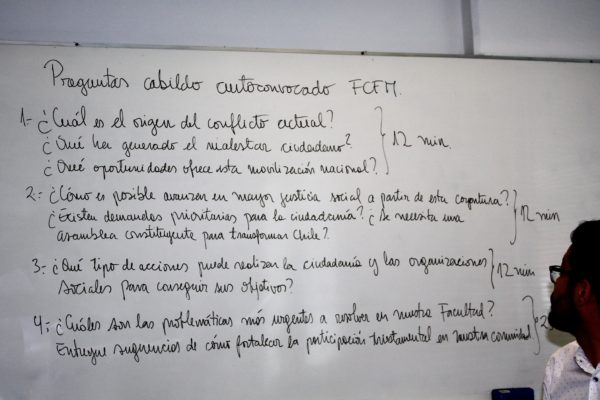 Preguntas cabildo autoconvocado FCFM.
1.- ¿Cuál es el origen del conflicto actual?
¿Qué ha generado el malestar ciudadano? 12 min.
¿Qué oportunidades ofrece esta movilización nacional?
2.- ¿Cómo es posible avanzar en mayor justicia social a partir de esta coyuntura?
¿Existen demandas prioritarias para la ciudadanía? ¿Se necesita una 12 min
asamblea constituyente para transformar Chile?
3.- ¿Qué tipo de acciones puede realizar la ciudadanía y las organizaciones 12 min
sociales para conseguir sus objetivos?
4.- ¿Cuáles son las problemáticas más urgentes a resolver en nuestra Facultad?
Entregue sugerencias de cómo fortalecer la participación triestamental en nuestra comunidad